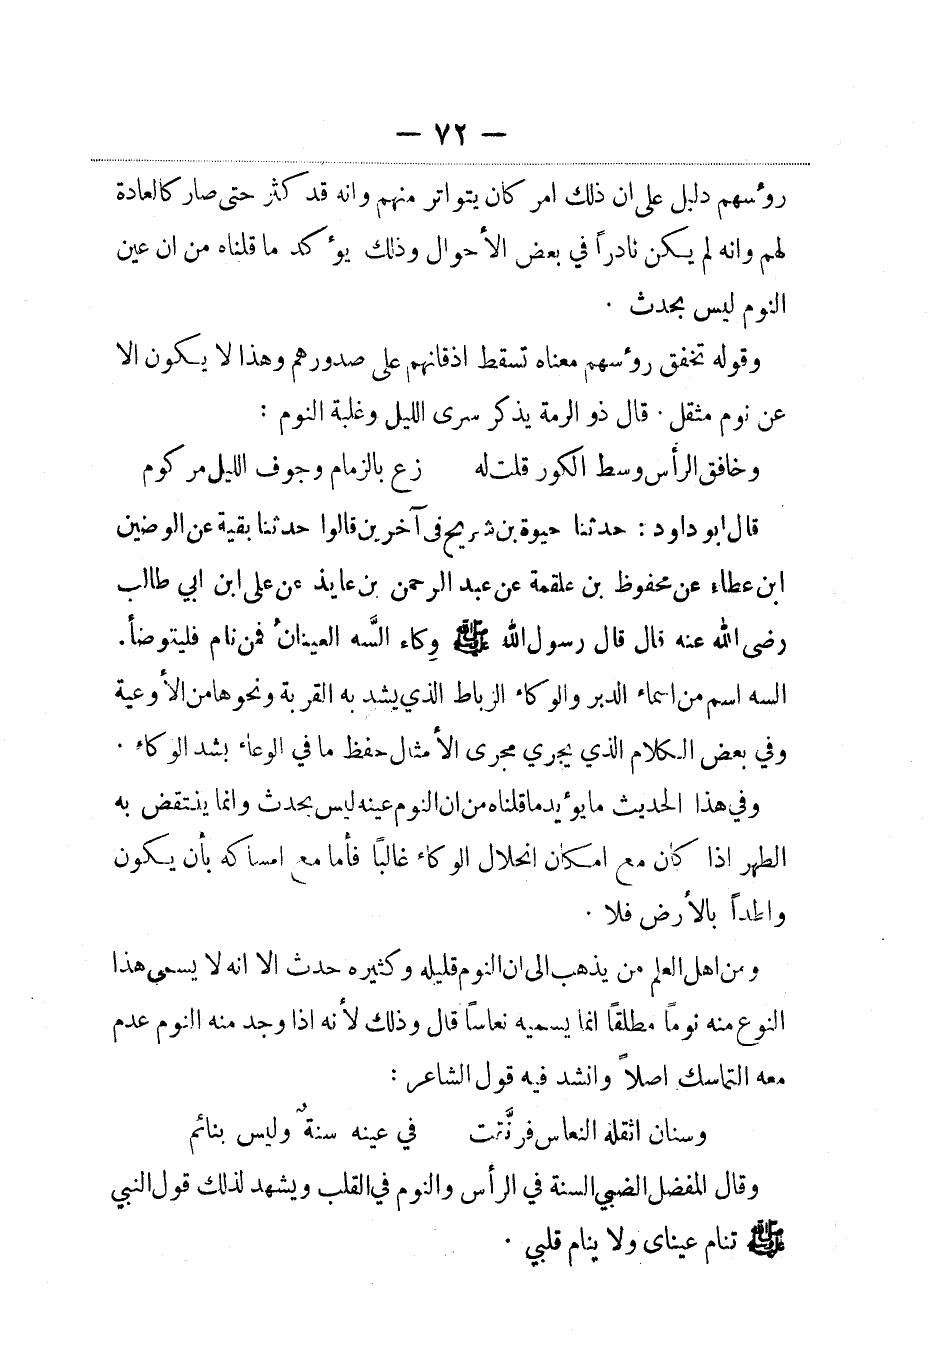 — ٧٢ —
روٴسهم دليل على ان ذلك امر كان يتواتر منهم وانه قد كثر حتى صار كالعادة
لهم وانه لم يكن نادراً في بعض الأحوال وذلك يوٴكد ما قلناه من ان عين
النوم ليس بحدث ٠
وقوله تخفق روٴسهم معناه تسقط اذقانهم على صدورهم وهذا لا يكون الا
عن نوم مثقل ٠ قال ذو الرمة يذكر سرى الليل وغلبة النوم :
وخافق الرأس وسط الكور قلت له زع بالزمام وجوف الليل مركوم
قال ابو داود : حدثنا حيوة بن شريح فى آخرين قالوا حدثنا بقية عن الوضين
ابن عطاء عن محفوظ بن علقمة عن عبد الرحمن بن عايذ عن على ابن ابي طالب
رضى الله عنه قال قال رسول الله ﷺ وِكاء السَّه العينان فمن نام فليتوضأ.
السه اسم من اسماء الدبر والوكاء الرباط الذي يشد به القربة ونحوها من الأوعية
وفي بعض الكلام الذي يجري مجرى الأمثال حفظ ما في الوعاء بشد الوكاء ٠
وفي هذا الحديث ما يوٴيد ما قلناه من ان النوم عينه ليس بحدث وانما ينتقض به
الطهر اذا كان مع امكان انحلال الوكاء غالبًا فأما مع امساكه بأن يكون
واطداً بالأرض فلا ٠
ومن اهل العلم من يذهب الى ان النوم قليله وكثيره حدث الا انه لا يسمى هذا
النوع منه نوماً مطلقاً انما يسميه نعاساً قال وذلك لأنه اذا وجد منه النوم عدم
معه التماسك اصلاً وانشد فيه قول الشاعر :
وسنان اثقله النعاس فرنَّقت في عينه سنةٌ وليس بنائم
وقال المفضل الضبي السنة في الرأس والنوم في القلب ويشهد لذلك قول النبي
ﷺ تنام عيناى ولا ينام قلبي ٠